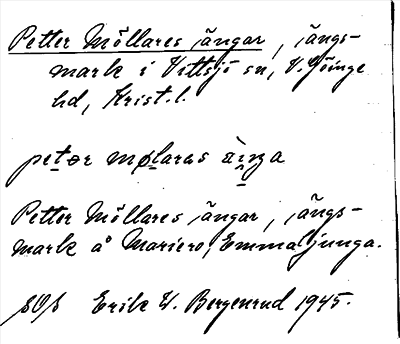 Petter Möllares ängar, ängs-
mark i Vittsjö sn, V. Göinge
hd, Krist. l.
petər møl̨aras äŋa
Petter Möllares ängar, ängs-
mark å Mariero, Emmaljunga.
SOS Erik W. Bergenrud 1945.